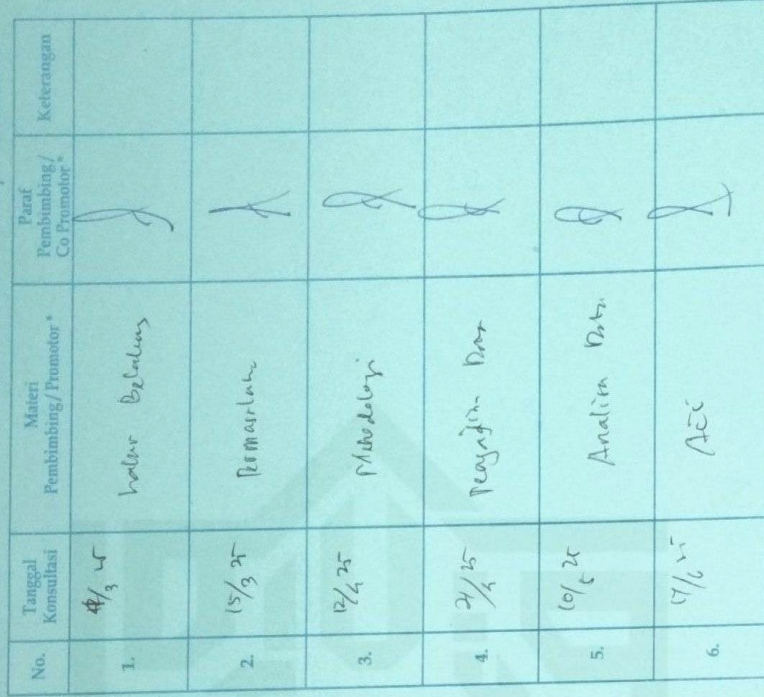 No.
Tanggal
Konsultasi
Materi
Pembimbing / Promotor *
Paraf
Pembimbing /
Co Promotor *
Keterangan
1.
Latar Belakang
2.
15/3 25
Permasalahan
3.
12/4 25
Metodologi
4.
Penyajian Data
5.
10/5 25
Analisa Data
6.
17/6 25
Acc